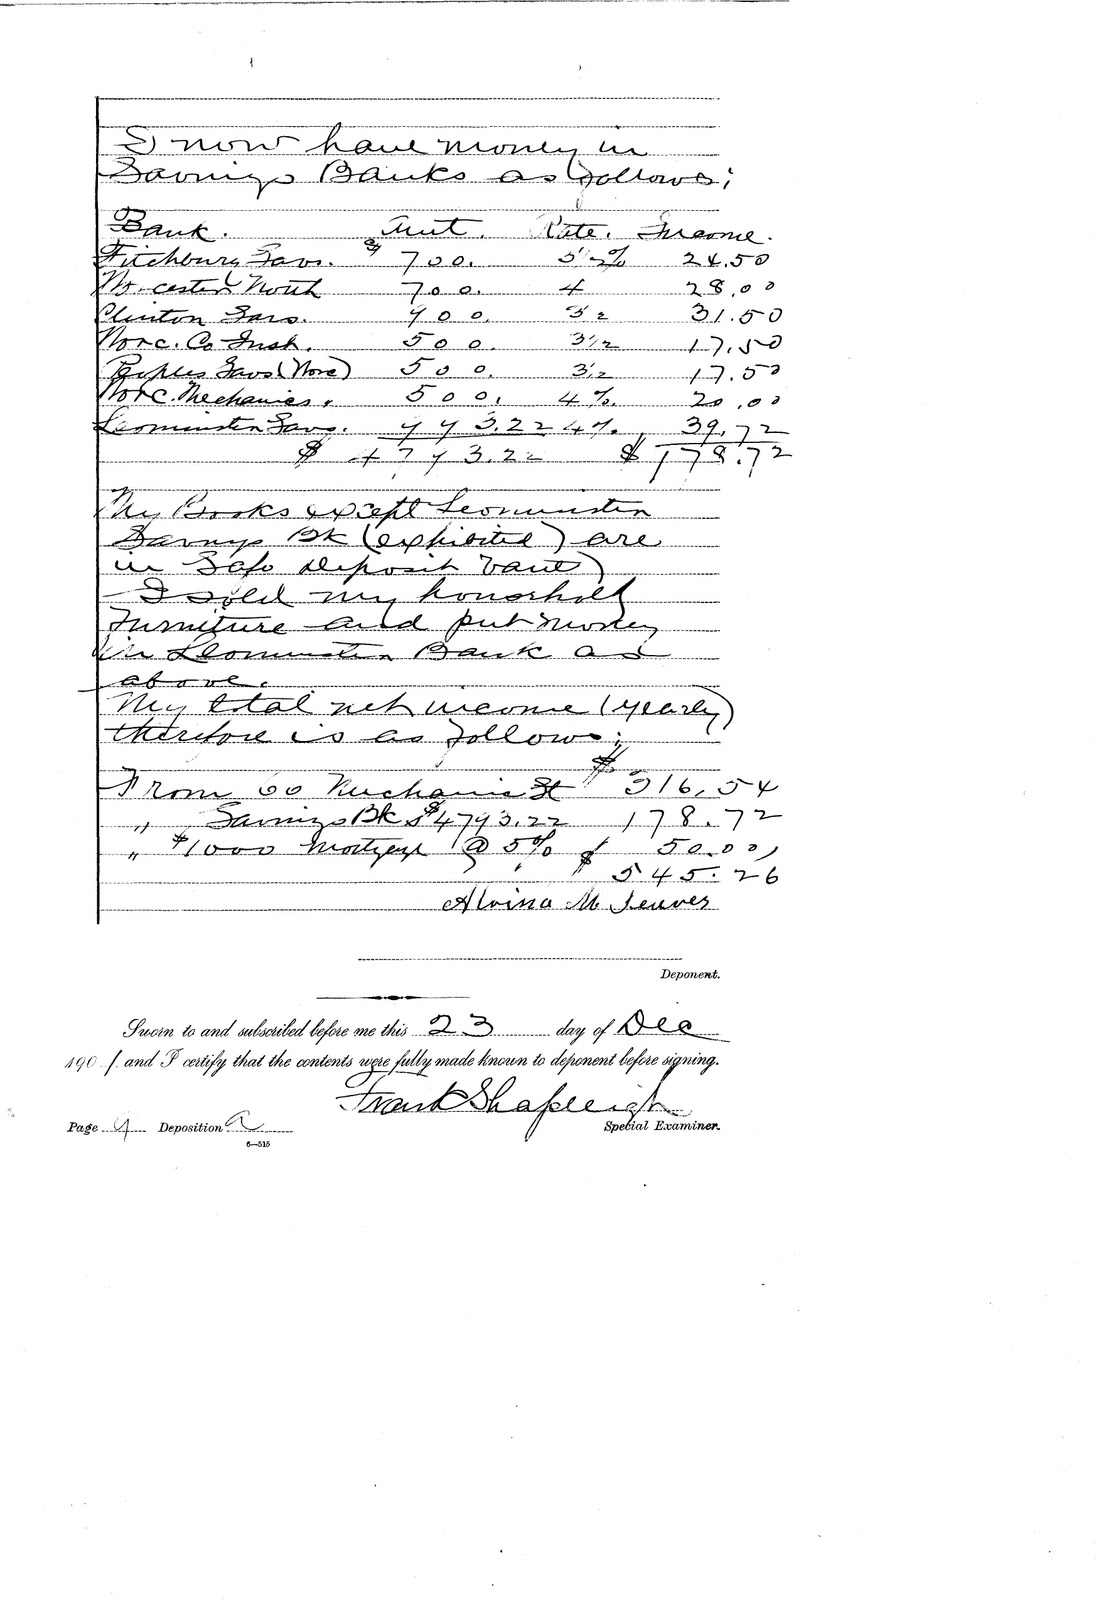 I now have money in
Savings Banks as follows;
Bank. Amt. Rate. Income.
Fitchburg Savs. $700. 3 1/2% 24.50
Worcester North 700. 4 28.00
Clinton Savs. 900. 3 1/2 31.50
Worc. Co Inst. 500. 3 1/2 17.50
Peoples Savs (Worc) 500. 3 1/2 17.50
Worc. Mechanics. 500. 4%. 20.00
Leominster Savs. 993.22 4%. 39.72
$ 4793.22 $ 178.72
My Books except Leominster
Savings Bk (exhibited) are
in Safe Deposit Vault)
I sold my household
furniture and put money
in Leominster Bank as
above.
My total net income (yearly)
therefore is as follows;
From 60 Mechanic St $ 316.54
" Savings Bk s $4793.22 178.72
" $1000 Mortgage @ 5% 50.00
$ 545.26
Alvina M
Deponent.
Sworn to and subscribed before me this 23 day of Dec
190 and I certify that the contents were fully made known to deponent before signing.
Frank Shapleigh
Page 9 Deposition A Special Examiner.
6—515